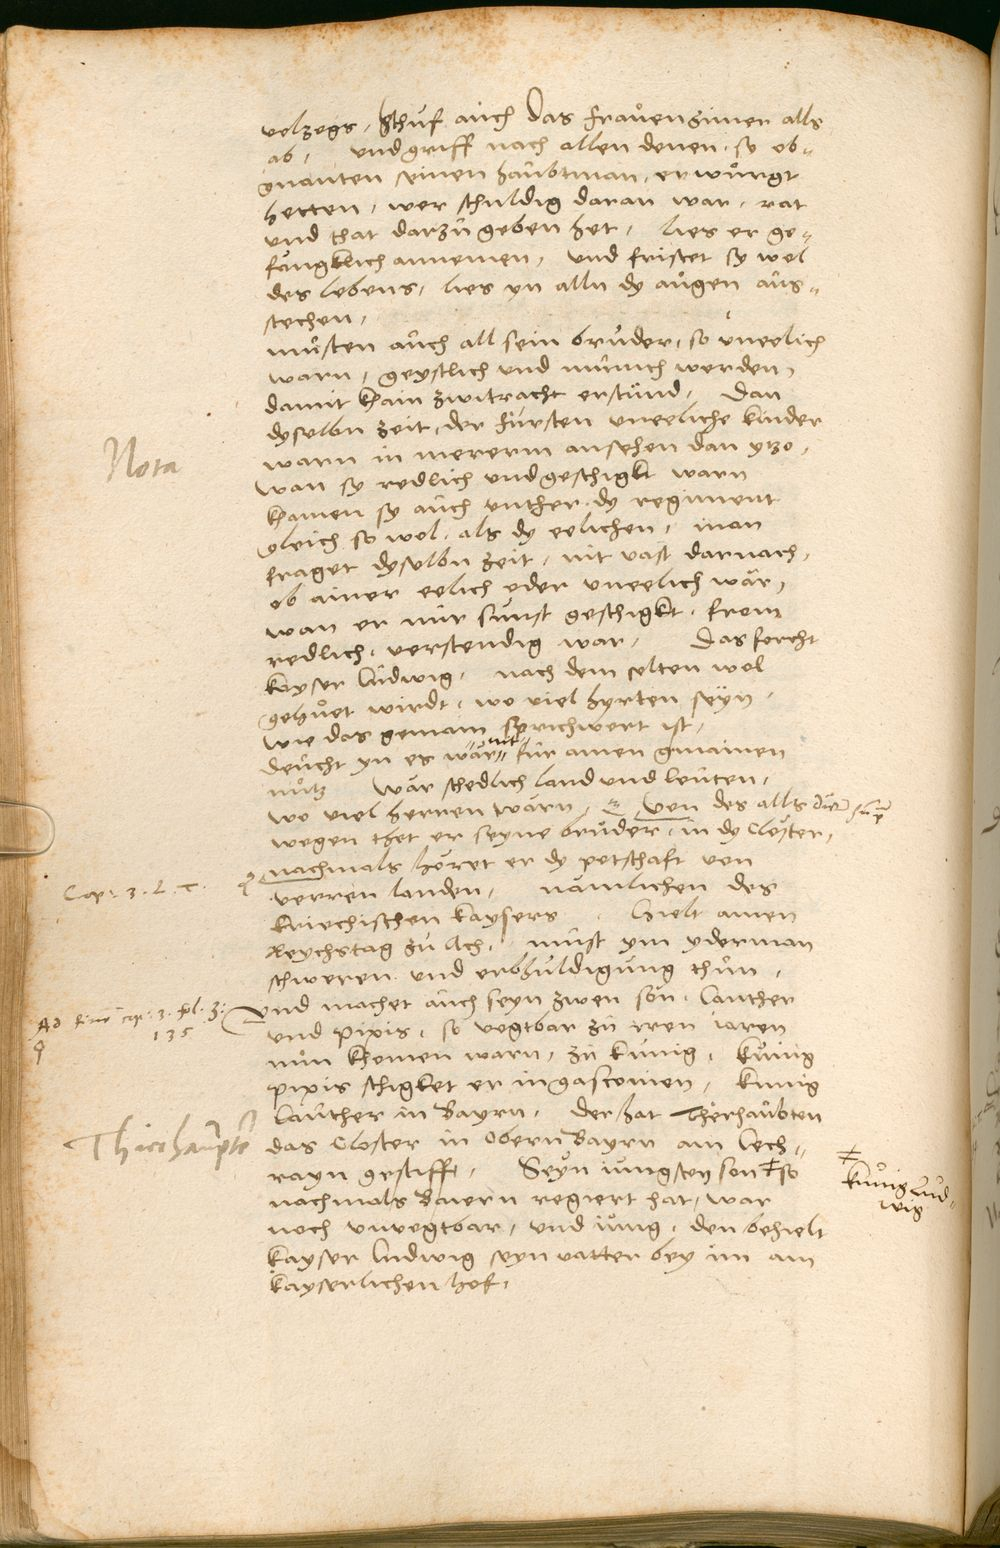 volzogs, schuf auch das frauenzimer alls
ab, und griff nach allen denen, so ob-
gnanten seinen haubtman, erwürgt
hetten, wer schuldig daran war, rat
und that darzu geben het, lies er ge-
fängklich annemen, und fristet sy wol
des lebens, lies yn alln dy augen aus-
stechen,
müsten auch all sein bruder, so uneelich
warn, geystlich und münich werden,
damit khain zwitracht erstünd, Dan
dyselbn zeit, der fürsten uneeliche kinder
warn in mererm ansehen dan ytzo,
Nota
wan sy redlich und geschigkt warn
khamen sy auch unther dy regiment
gleich so wol, als dy eelichen, man
fraget dyselbn zeit, nit vast darnach,
ob ainer eelich oder uneelich wär,
wan er nur sunst geschigkt, from
redlich, verstendig war, Das forcht
kayser Ludwig, nach dem selten wol
gehuet wirdt, wo viel hyrten seyn,
wie das gemain sprichwort ist,
deucht yn es wär nit für ainen gmainen
nutz wär schedlich land und leuten,
wo viel herren wärn, Von des alls
wegen thet er seyne bruder, in dy Clöster,
nachmals höret er dy potschaft von
Cap: 3. L. C.
verren landen, nämlichen des
kriechischen kaysers, Hielt ainen
Reychstag zu Ach, must ym yderman
schweren und erbhuldigung thun,
Und machet auch seyn zwen sön, Lauther
Ad cap: 3.
135
und Pipis, so vogtbar zu iren iaren
nun khomen warn, zu künig, künig
Pipis schigket er in gasconien, künig
Lauther in Bayrn, der hat Therhaubten
Thierhaupte
das Closter in Obern Bayrn am Lech-
rayn gestifft, Seyn iungsten son ≠ so
≠ künig Lud-
wig
nachmals Baiern regiert hat, war
noch unvogtbar, und iung, den behielt
kayser Ludwig seyn vatter bey im am
kayserlichen hof,